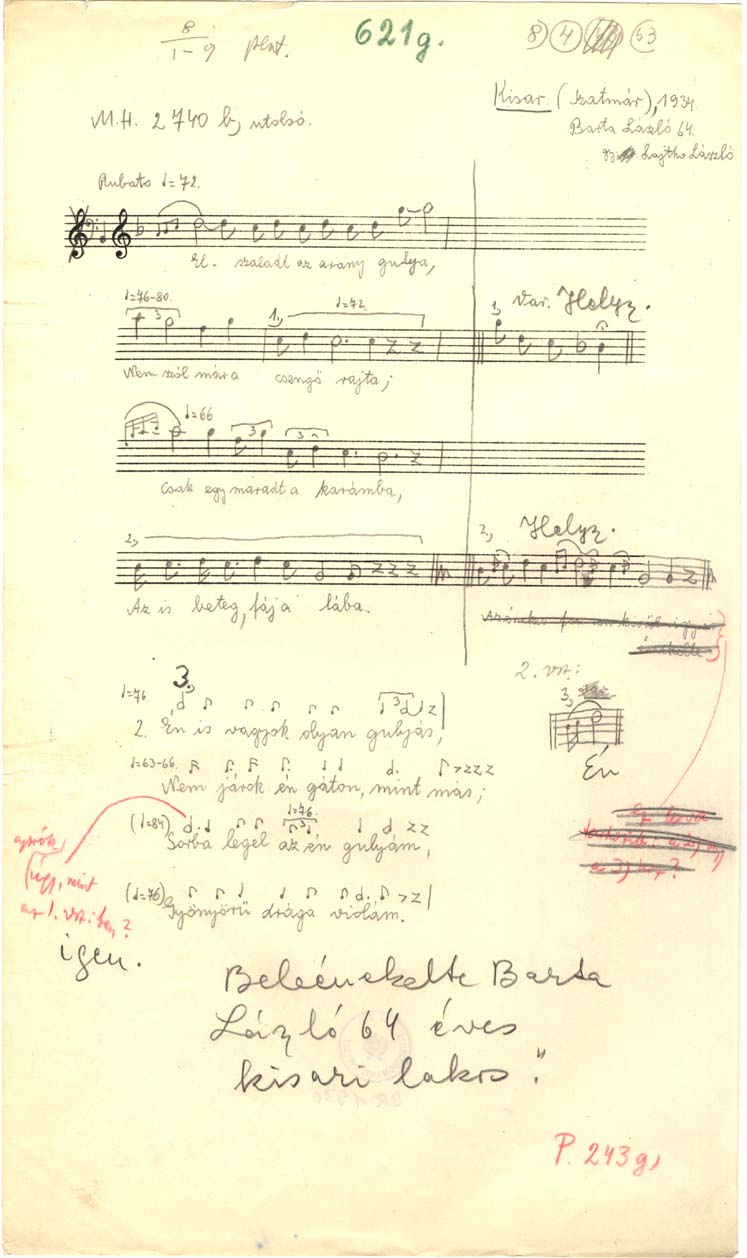 8
1-9 pent.
621g.
8 4 63
Kisar. (Szatmár), 1934.
Barta László 64.
Lajtha László
M.H. 2740 b, utolsó.
Rubato ♩=72.
El- szaladt az arany gulya,
♩=76-80.
3
1,
♩=72.
1, Var. Helyz.
Nem szól már a csengő rajta;
♩=66
3
3
Csak egy maradt a karámba,
2,
2, Helyz.
Az is beteg, fáj a lába.
2. vsz:
3,
Én
♩=76
3,
3
2. Én is vagyok olyan gulyás,
♩=63-66.
Nem járok én gáton, mint más;
(♩=84)
♩=76.
3
Sorba legel az én gulyám,
(♩=76)
Gyönyörű drága violám.
aprók
(úgy, mint
az 1. vsz.-ban?
igen.
Beleénekelte Barta
László 64 éves
kisari lakos."
P. 243g,